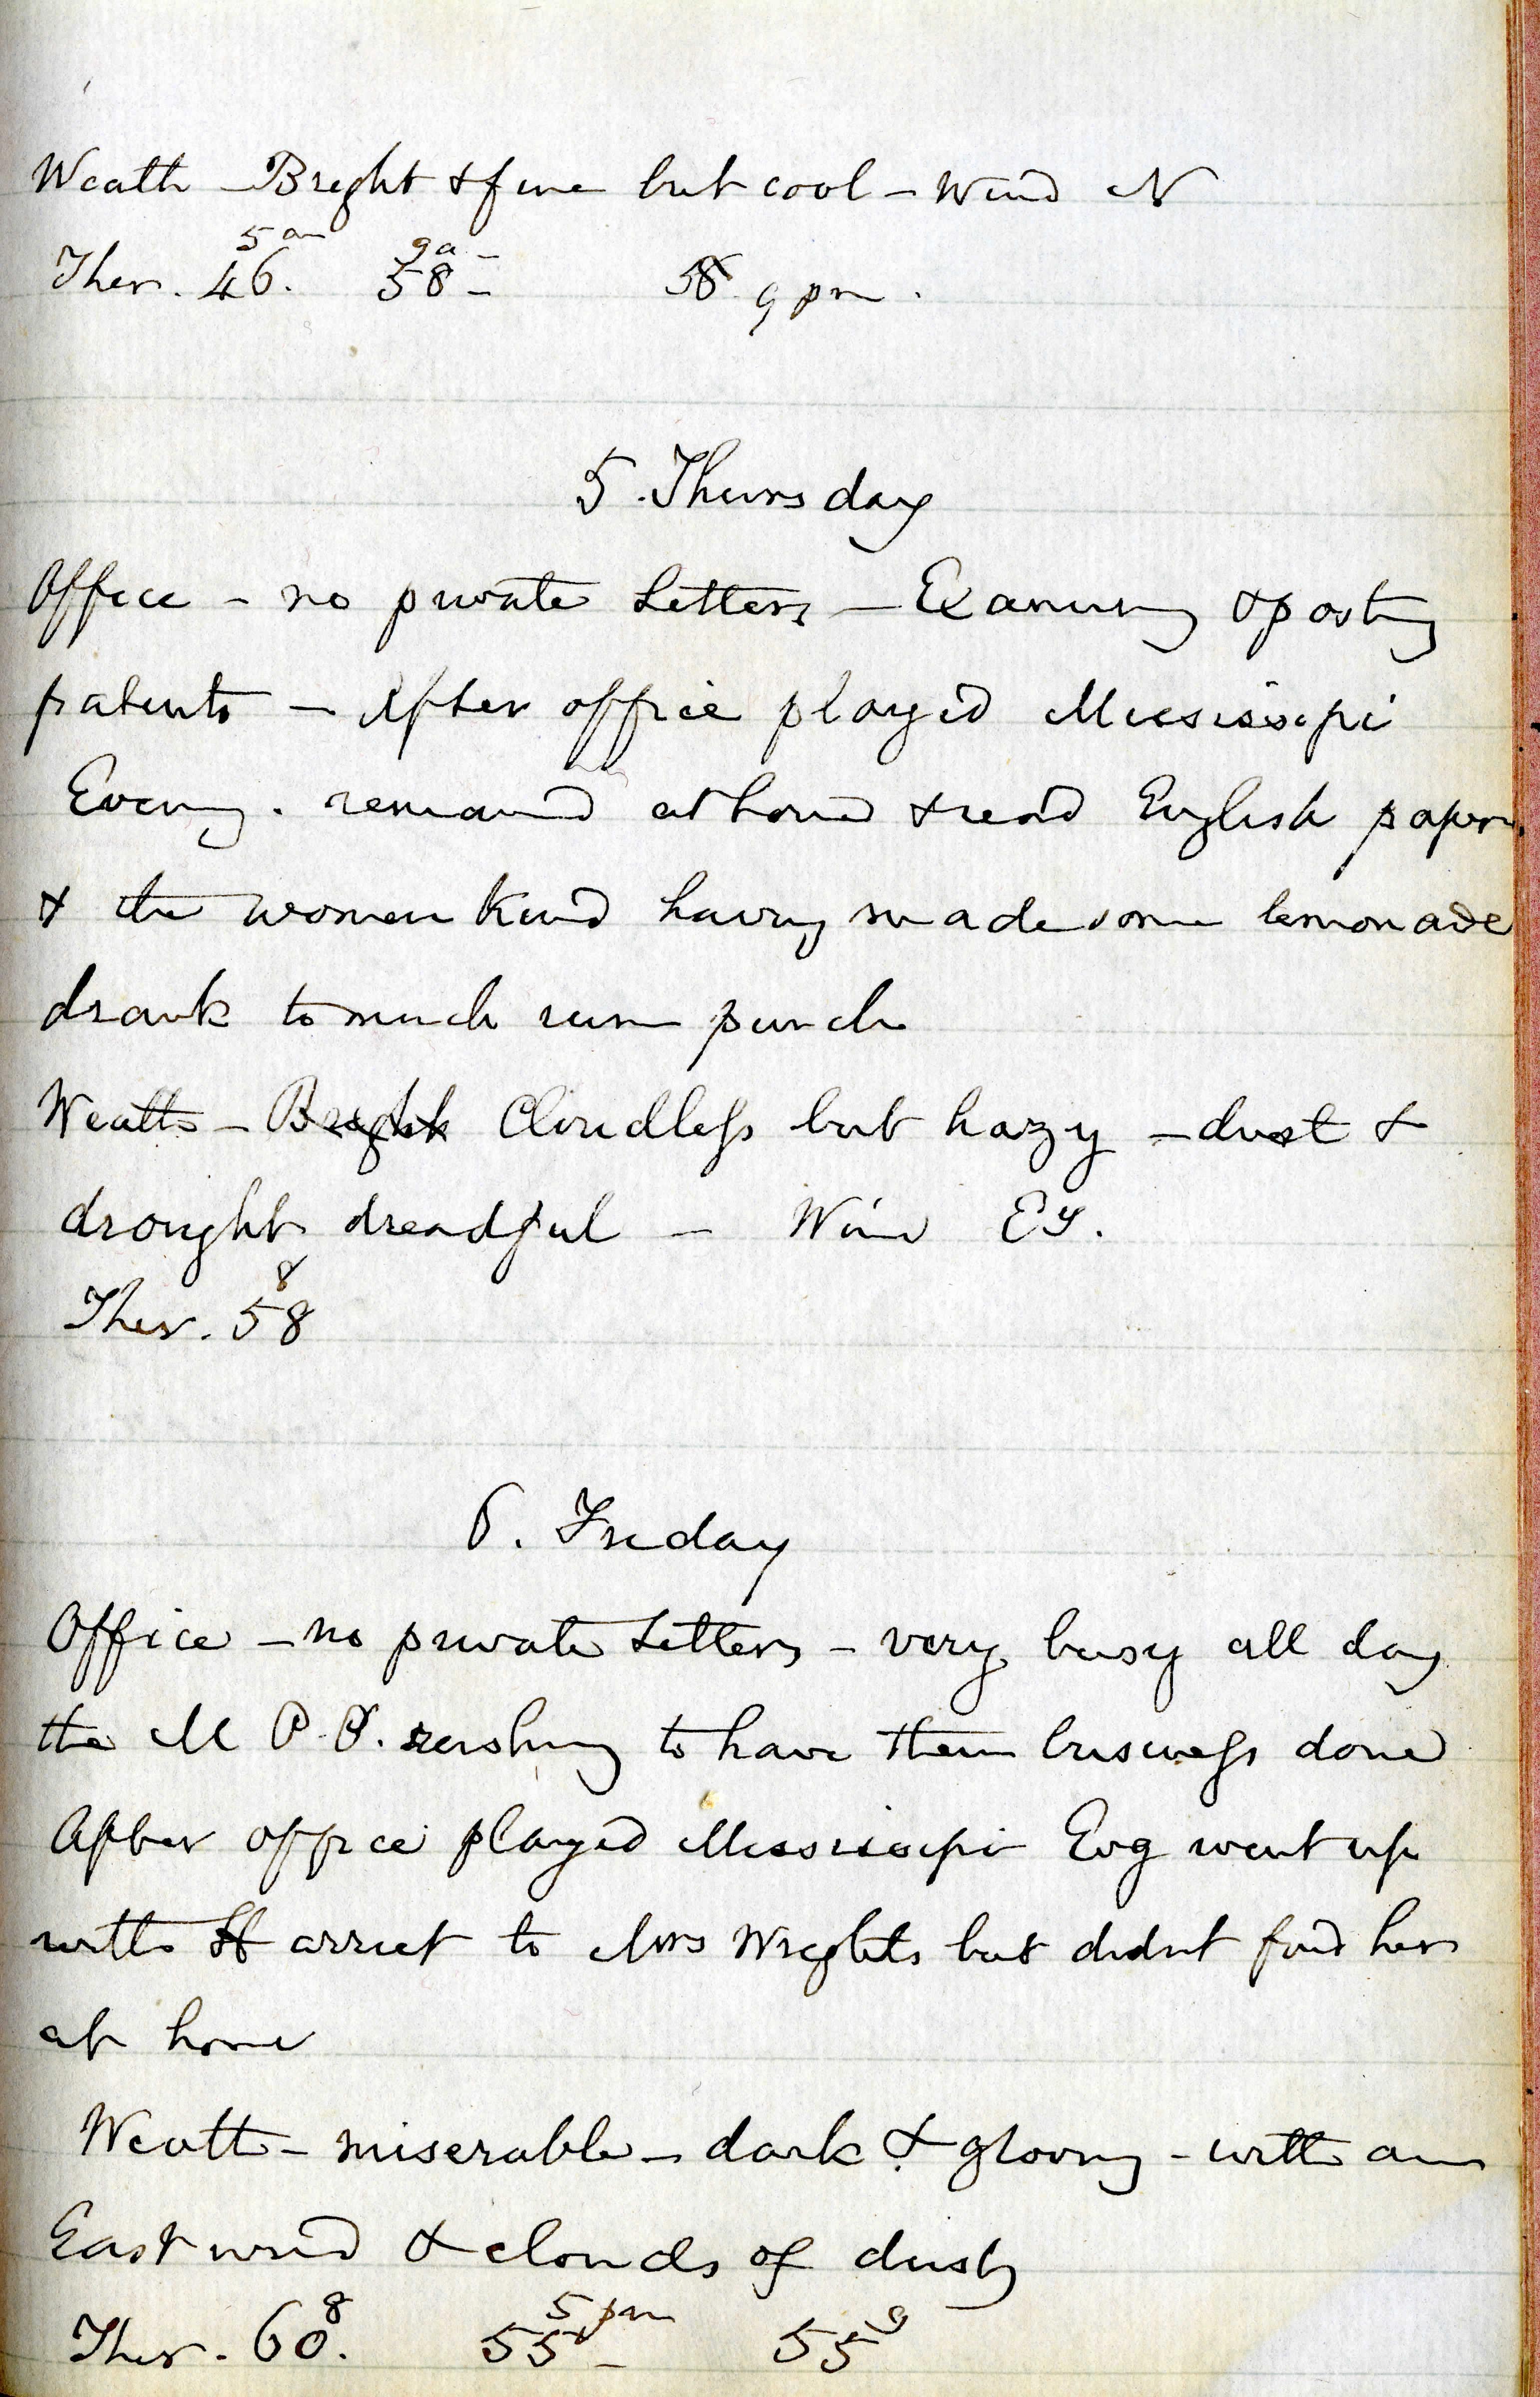 Weath - Bright & fine but cool - Wind N
5 am 9 a -
Ther. 46. 58 - 58 9 pm.
5. Thursday
Office - no private Letters - Examining & posting
patents - After office played Mississipi
Evening. remained at home & read English papers
& the women Kind having made some lemonade
drank to much rum punch
Weath - Bright Cloudless but hazy - dust &
drought dreadful - Wind Ey.
8
Ther. 58
6. Friday
Office - no private Letters - very busy all day
the M P.P. rushing to have their business done
After office played Mississipi Evg went up
with Harriet to Mrs Wrights but didnt find her
at home
Weath - miserable - dark & gloomy - with an
East wind & clouds of dust
8 5 pm 9
Ther. 60. 55 - 55